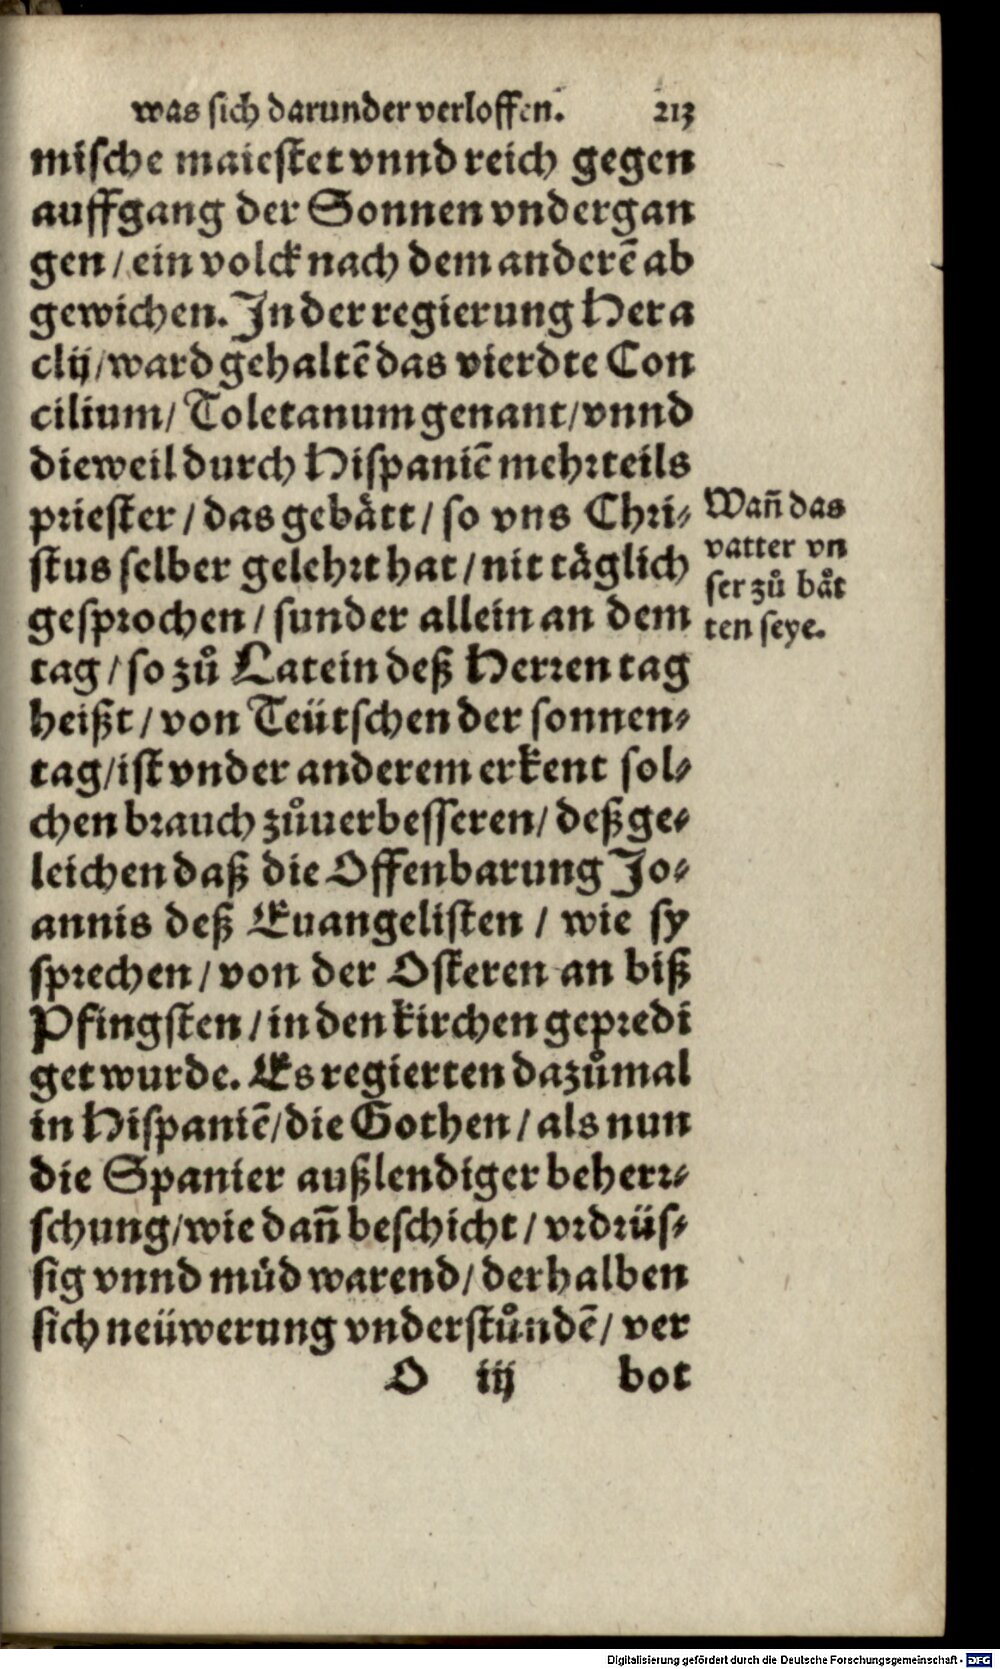 was sich darunder verloffen. 213
mische maiestet vnnd reich gegen
auffgang der Sonnen vndergan
gen / ein volck nach dem anderẽ ab
gewichen. In der regierung Hera
clij / ward gehaltẽ das vierdte Con
cilium / Toletanum genant / vnnd
dieweil durch Hispaniẽ mehrteils
priester / das gebaͤtt / so vns Chri⸗
stus selber gelehrt hat / nit taͤglich
gesprochen / sunder allein an dem
tag / so zuͦ Latein deß Herren tag
heißt / von Teütschen der sonnen⸗
tag / ist vnder anderem erkent sol⸗
chen brauch zuͦuerbesseren / deß ge⸗
leichen daß die Offenbarung Jo⸗
annis deß Euangelisten / wie sy
sprechen / von der Osteren an biß
Pfingsten / in den kirchen gepredi
get wurde. Es regierten dazuͦmal
in Hispaniẽ / die Gothen / als nun
die Spanier außlendiger beherr⸗
schung / wie dañ beschicht / vrdrüs⸗
sig vnnd müd warend / derhalben
sich neüwerung vnderstuͦndẽ / ver
O iij bot
Wañ das
vatter vn
ser zuͦ baͤt
ten seye.
Digitalisierung gefördert durch die Deutsche Forschungsgemeinschaft - DFG